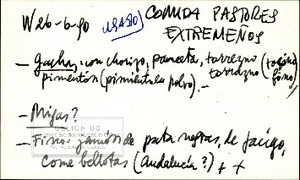 W26-6-90 USADO COMIDA PASTORES
EXTREMEÑOS
— Gachas: con chorizo, panceta, torrezno (tocino
pimentón (pimienta en polvo). — torrezno frito)
— Migas?
— Fino: jamón de pata negra, de
come bellotas (Andalucía?) + +